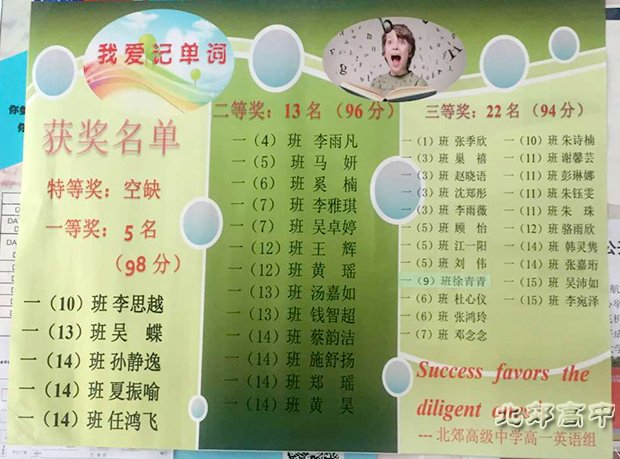 我爱记单词
获奖名单
特等奖：空缺
一等奖：5名
（98分）
一（10）班 李思越
一（13）班 吴 蝶
一（14）班 孙静逸
一（14）班 夏振喻
一（14）班 任鸿飞
二等奖：13名（96分）
一（4）班 李雨凡
一（5）班 马 妍
一（6）班 奚 楠
一（7）班 李雅琪
一（7）班 吴卓婷
一（12）班 王 辉
一（12）班 黄 瑶
一（13）班 汤嘉如
一（13）班 钱智超
一（14）班 蔡韵洁
一（14）班 施舒扬
一（14）班 郑 瑶
一（14）班 黄 昊
三等奖：22名（94分）
一（1）班 张季欣
一（3）班 巢 禧
一（3）班 赵晓语
一（3）班 沈郑彤
一（3）班 李雨薇
一（5）班 顾 怡
一（5）班 江一阳
一（5）班 刘 伟
一（9）班徐青青
一（6）班 杜心仪
一（6）班 张鸿玲
一（7）班 邓念念
一（10）班 朱诗楠
一（11）班 谢馨芸
一（11）班 彭琳娜
一（11）班 朱钰雯
一（11）班 朱 珠
一（12）班 骆雨欣
一（14）班 韩灵隽
一（14）班 张嘉珩
一（15）班 吴沛如
一（15）班 李宛泽
Success favors the
diligent
北郊高中
---北郊高级中学高一英语组